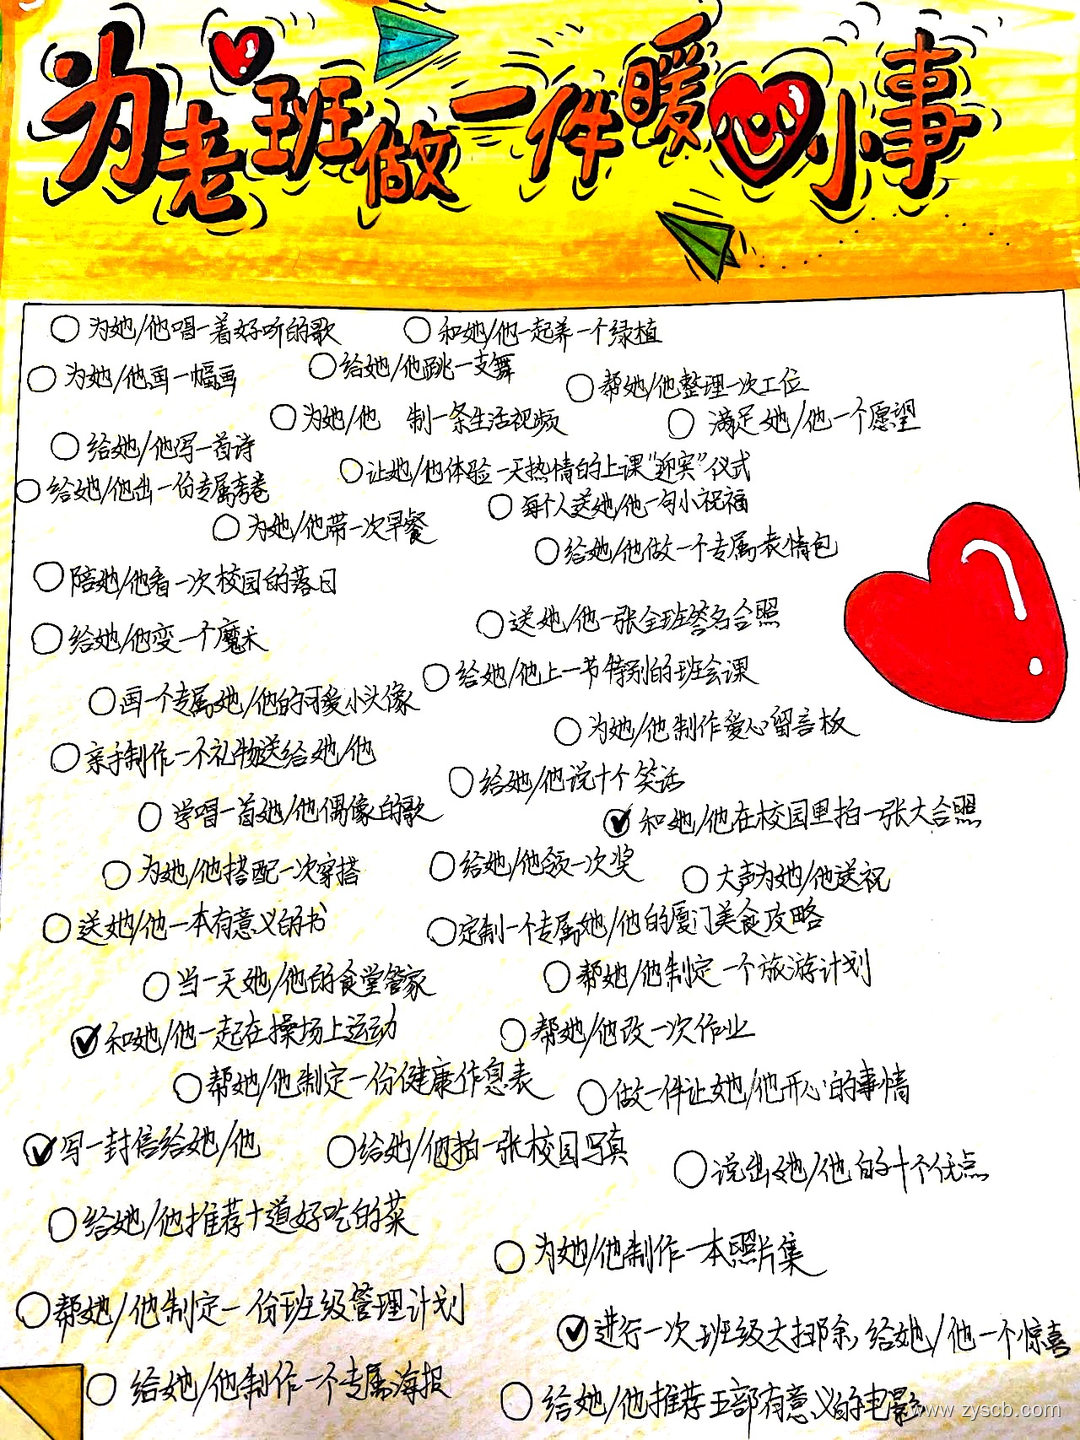 为老班做一件暖心小事
为她/他唱一着好听的歌
和她/他一起养一个绿植
为她/他画一幅画
给她/他跳一支舞
帮她/他整理一次工位
为她/他 制一条生活视频
满足她/他一个愿望
给她/他写一首诗
让她/他体验一天热情的上课"迎宾"仪式
给她/他出一份专属考卷
每个人送她/他一句小祝福
为她/他带一次早餐
给她/他做一个专属表情包
陪她/他看一次校园的落日
送她/他一张全班签名合照
给她/他变一个魔术
给她/他上一节特别的班会课
画一个专属她/他的可爱小头像
为她/他制作爱心留言板
亲手制作一个礼物送给她/他
给她/他说十个笑话
学唱一首她/他偶像的歌
和她/他在校园里拍一张大合照
为她/他搭配一次穿搭
给她/他颁一次奖
大声为她/他送祝
送她/他一本有意义的书
定制一个专属她/他的厦门美食攻略
当一天她/他的食堂管家
帮她/他制定一个旅游计划
和她/他一起在操场上运动
帮她/他改一次作业
帮她/他制定一份健康作息表
做一件让她/他开心的事情
写一封信给她/他
给她/他拍一张校园写真
说出她/他的十个优点
给她/他推荐十道好吃的菜
为她/他制作一本照片集
帮她/他制定一份班级管理计划
进行一次班级大扫除,给她/他一个惊喜
给她/他制作一个专属海报
给她/他推荐五部有意义的电影
www.zyscb.com